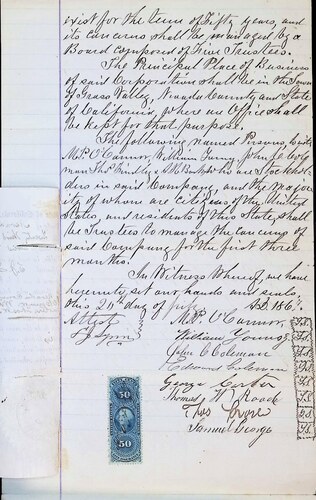 exist for the term of Fifty years, and
its concerns shall be managed by a
Board composed of Five Trustees.
The Principal Place of Business
of said Corporation shall be in the Town
of Grass Valley, Nevada County and State
of California, where an Office shall
be kept for that purpose.
The following named Persons, to wit:
M.P. O'Connor, William Young, John C. Cole
man Thos. A. H. who are Stockhol
ders in said Company, and the major
ity of whom are Citizens of the United
States, and residents of this State, shall
be Trustees to manage the concerns of
said Company for the first three
months.
In Witness Whereof, we have
hereunto set our hands and seals
this 20th day of A.D. 186
Attest M.P. O'Connor
William Young
John C Coleman
Edward Coleman
George
Thomas W
Thos
Samuel George
50
50